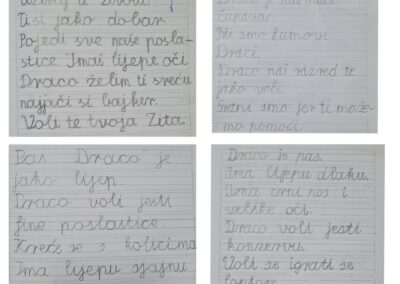 Uživaj u životu
Ti si jako dobar.
Pojedi sve naše posla-
stice. Imaš lijepe oči
Draco želim ti sreću
najjači si bajker.
Voli te tvoja Zita.
Draco je naš mali
čupavac.
Mi smo kumovi
Draci.
Draco naš razred te
jako voli.
Sretni smo jer ti može-
mo pomoći.
Pas Draco je
jako lijep.
Draco voli jesti
fine poslastice.
Kreće se s kolicima
Ima lijepu sjajnu
Draco je pas.
Ima lijepu dlaku.
Ima crni nos i
velike oči.
Draco voli jesti
konzervu.
Voli se igrati sa
loptom